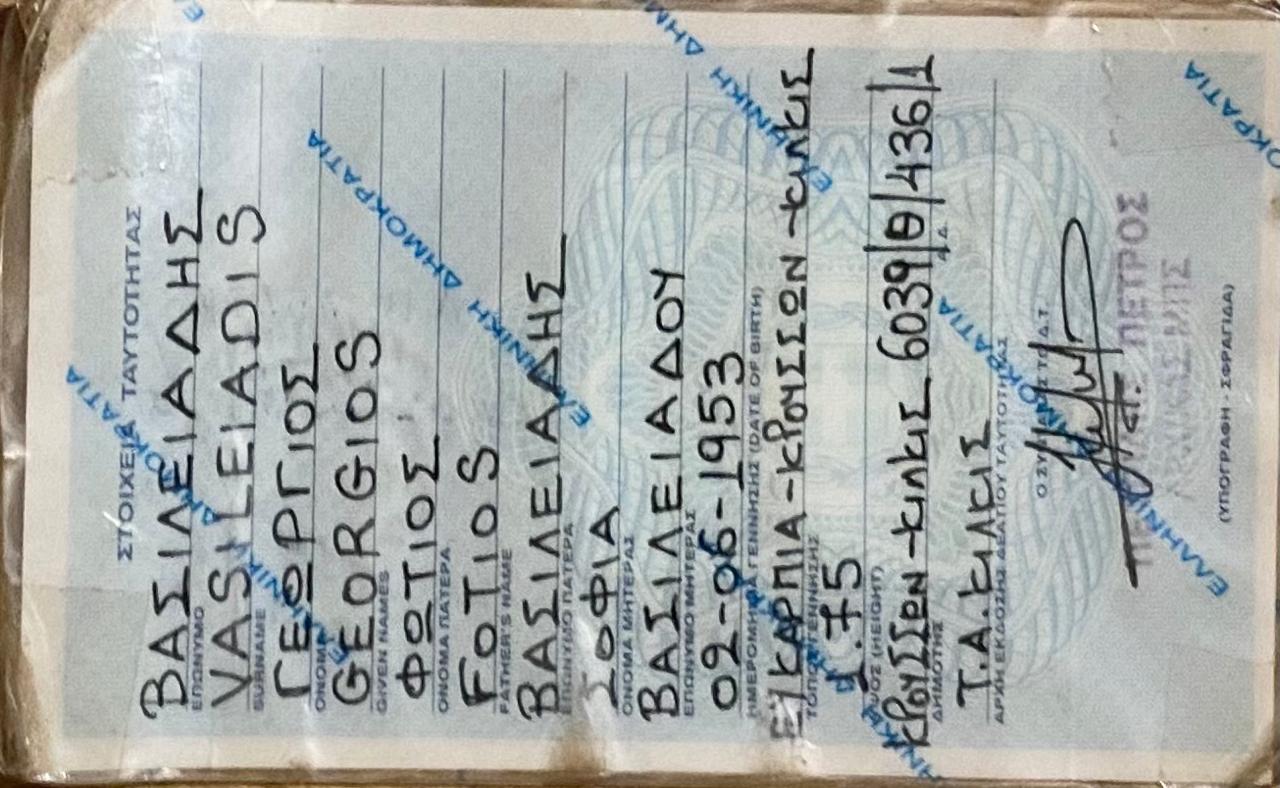 ΣΤΟΙΧΕΙΑ ΤΑΥΤΟΤΗΤΑΣ
ΒΑΣΙΛΕΙΑΔΗΣ
ΕΠΩΝΥΜΟ
VASILEIADIS
SURNAME
ΓΕΩΡΓΙΟΣ
ΟΝΟΜΑ
GEORGIOS
GIVEN NAMES
ΦΩΤΙΟΣ
ΟΝΟΜΑ ΠΑΤΕΡΑ
FOTIOS
FATHER'S NAME
ΒΑΣΙΛΕΙΑΔΗΣ
ΕΠΩΝΥΜΟ ΠΑΤΕΡΑ
ΣΟΦΙΑ
ΟΝΟΜΑ ΜΗΤΕΡΑΣ
ΒΑΣΙΛΕΙΑΔΟΥ
ΕΠΩΝΥΜΟ ΜΗΤΕΡΑΣ
02-06-1953
ΗΜΕΡΟΜΗΝΙΑ ΓΕΝΝΗΣΗΣ (DATE OF BIRTH)
ΕΥΚΑΡΠΙΑ-ΚΡΟΥΣΣΩΝ-ΚΙΛΚΙΣ
ΤΟΠΟΣ ΓΕΝΝΗΣΗΣ
1.75
ΥΨΟΣ (HEIGHT)
ΚΡΟΥΣΣΩΝ-ΚΙΛΚΙΣ 6039|Θ|436|1
ΔΗΜΟΤΗΣ
Τ.Α. ΚΙΛΚΙΣ
ΑΡΧΗ ΕΚΔΟΣΗΣ ΔΕΛΤΙΟΥ ΤΑΥΤΟΤΗΤΑΣ
ΠΕΤΡΟΣ
(ΥΠΟΓΡΑΦΗ - ΣΦΡΑΓΙΔΑ)
ΕΛΛΗΝΙΚΗ ΔΗΜΟΚΡΑΤΙΑ